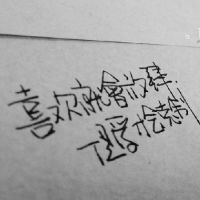 喜欢就會放肆.
但爱才会克制